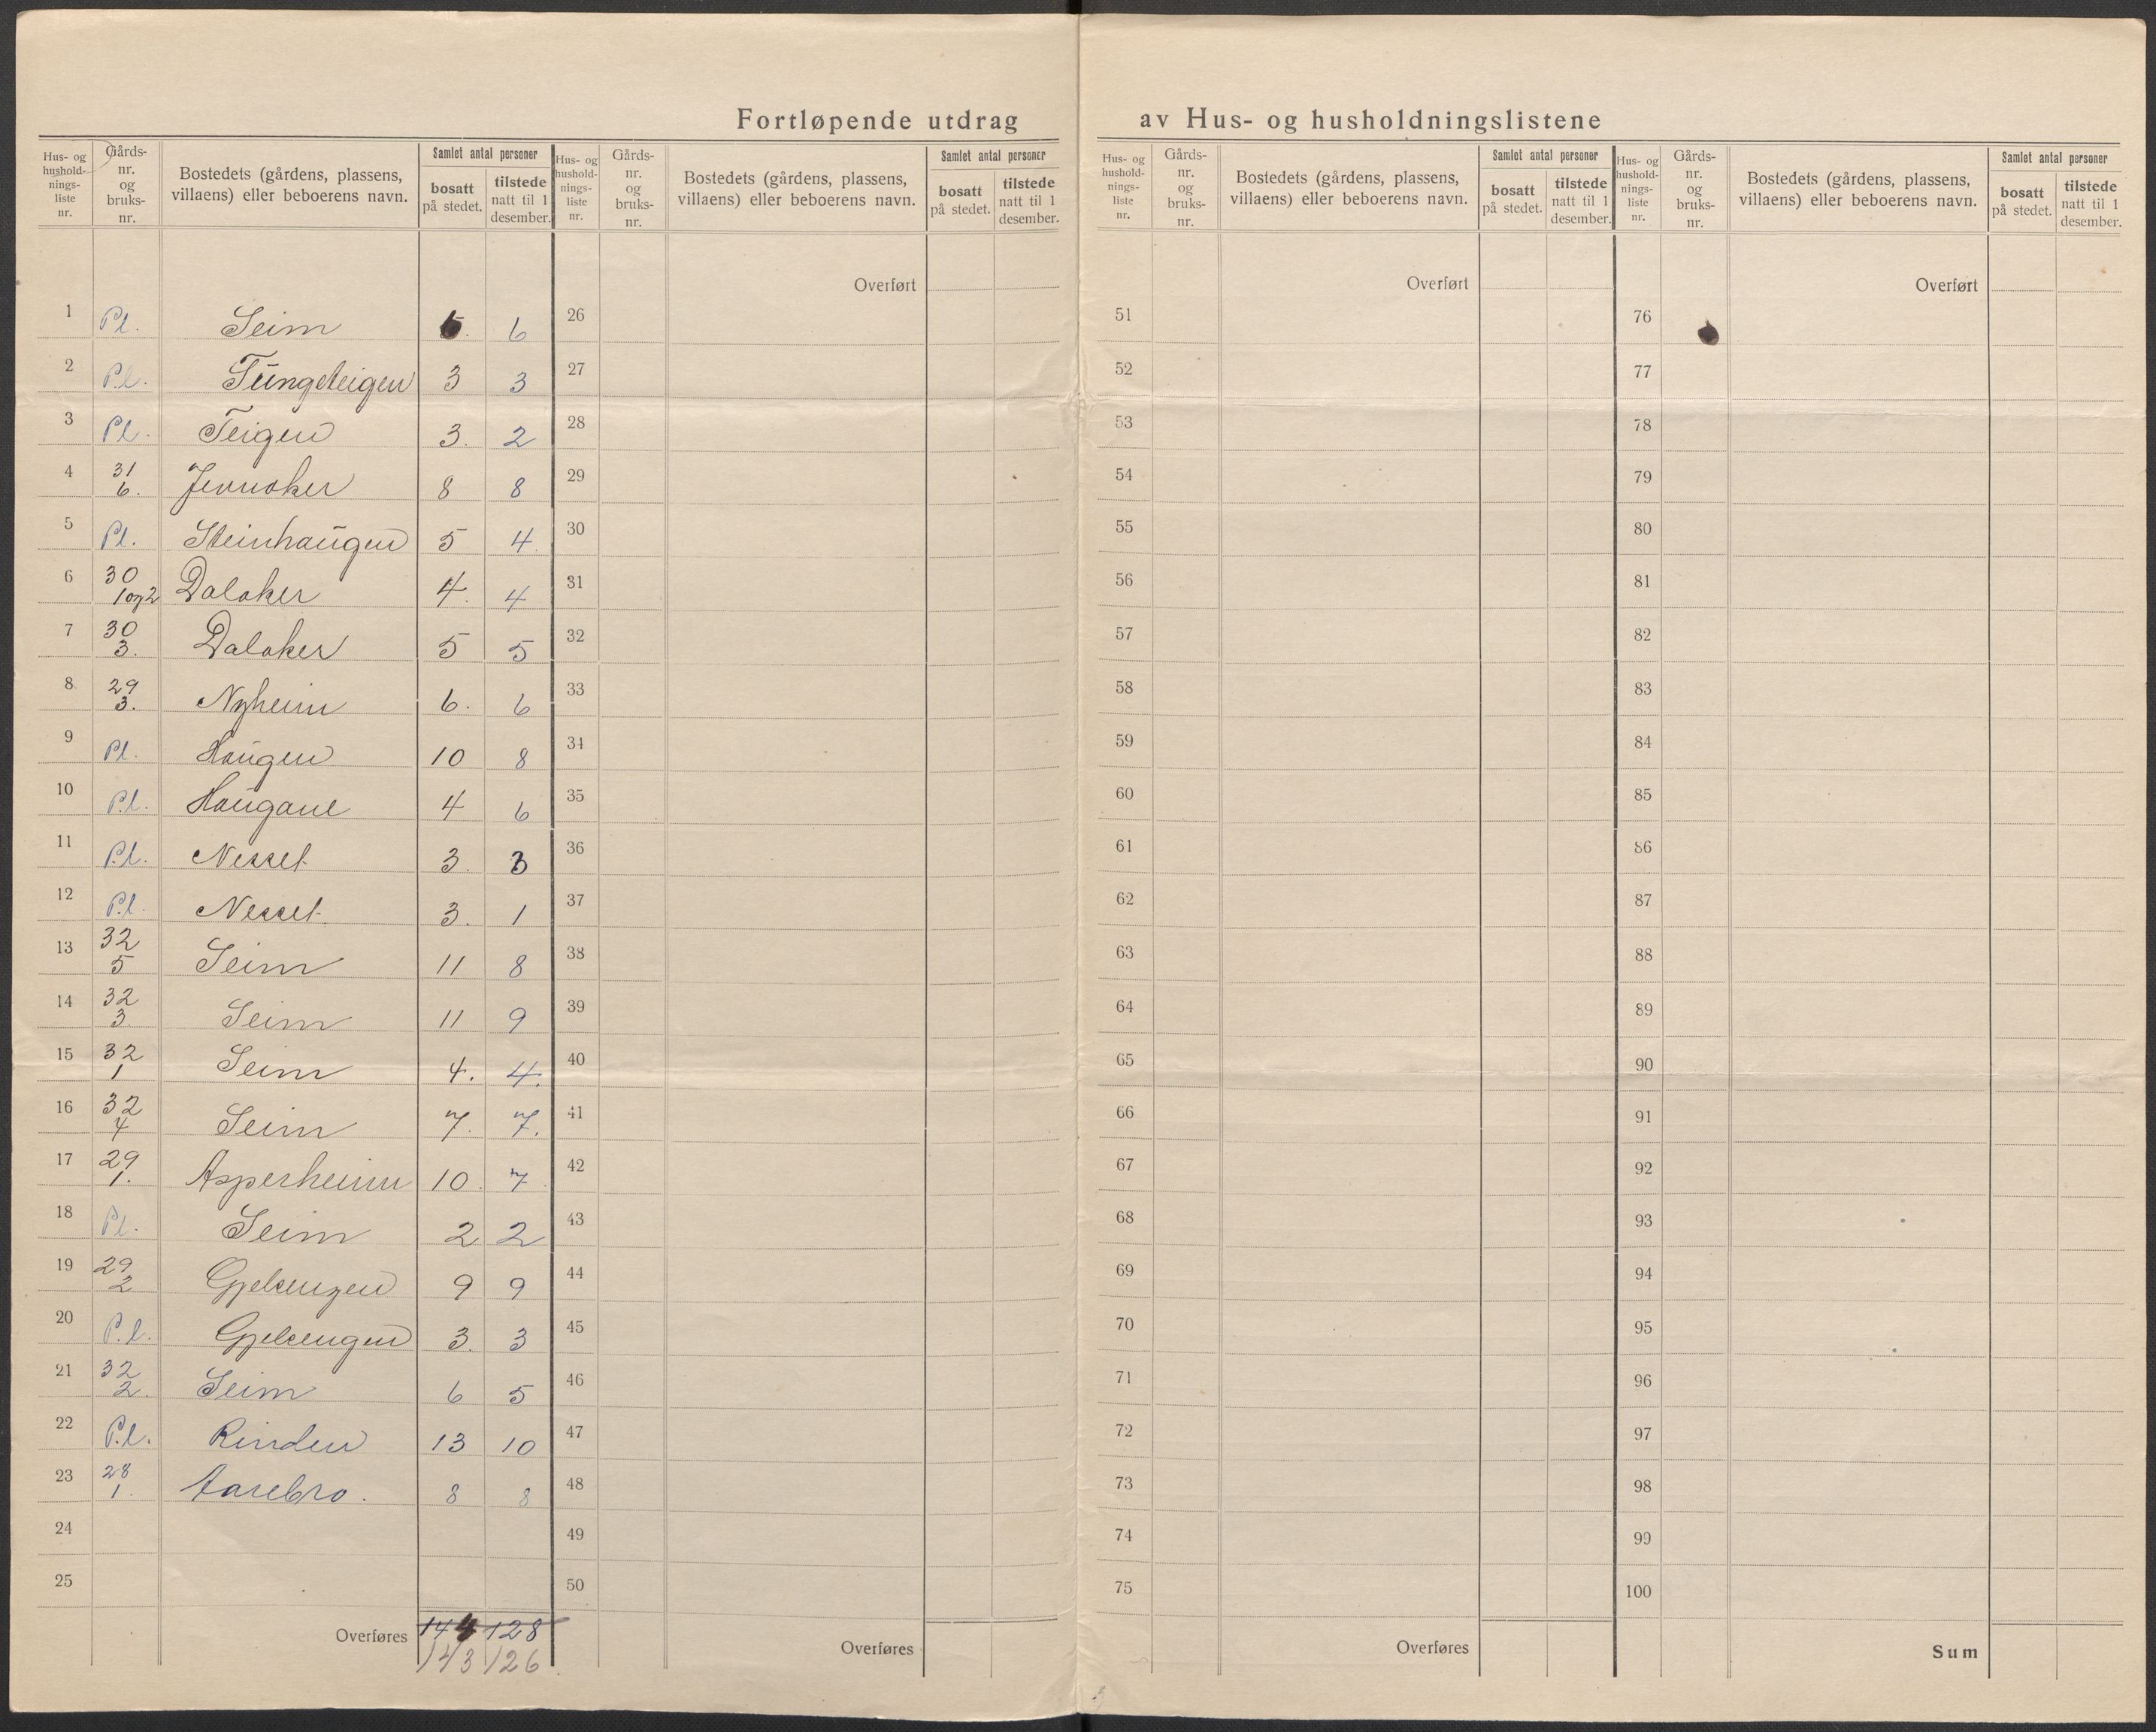 Fortløpende utdrag av Hus- og husholdningslistene
Hus- og hushold-nings-liste nr. Gårds-nr. og bruks-nr. Bostedets (gårdens, plassens, villaens) eller beboerens navn. Samlet antal personer bosatt på stedet. tilstede natt til 1 desember.
Hus- og hushold-nings-liste nr. Gårds-nr. og bruks-nr. Bostedets (gårdens, plassens, villaens) eller beboerens navn. Samlet antal personer bosatt på stedet. tilstede natt til 1 desember.
Hus- og hushold-nings-liste nr. Gårds-nr. og bruks-nr. Bostedets (gårdens, plassens, villaens) eller beboerens navn. Samlet antal personer bosatt på stedet. tilstede natt til 1 desember.
Hus- og hushold-nings-liste nr. Gårds-nr. og bruks-nr. Bostedets (gårdens, plassens, villaens) eller beboerens navn. Samlet antal personer bosatt på stedet. tilstede natt til 1 desember.
Overført Overført Overført
1 Pl. Seim 6 26 51 76
2 Pl. Tungeteigen 3 3 27 52 77
3 Pl. Teigen 3. 2 28 53 78
4 31 6. Jevnaker 8 8 29 54 79
5 Pl. Steinhaugen 5 4. 30 55 80
6 30 1og2 Dalaker 4. 4 31 56 81
7 30 3. Dalaker 5 5 32 57 82
8 29 3. Nyheim 6. 6 33 58 83
9 Pl. Haugen 10 8 34 59 84
10 Pl. Haugane 4 6 35 60 85
11 Pl. Nesset 3. 3 36 61 86
12 Pl. Nesset 3. 1 37 62 87
13 32 5 Seim 11 8 38 63 88
14 32 3. Seim 11 9 39 64 89
15 32 1 Seim 4. 4. 40 65 90
16 32 4 Seim 7. 7. 41 66 91
17 29 1. Asperheim 10. 7 42 67 92
18 Pl. Seim 2 2 43 68 93
19 29 2 Gjelsengen 9 9 44 69 94
20 Pl. Gjelsengen 3. 3 45 70 95
21 32 2. Seim 6 5 46 71 96
22 Pl. Rinden 13 10 47 72 97
23 28 1. Aarebro. 8 8 48 73 98
24 49 74 99
25 50 75 100
Overføres 144 128 Overføres Overføres Sum
143 126